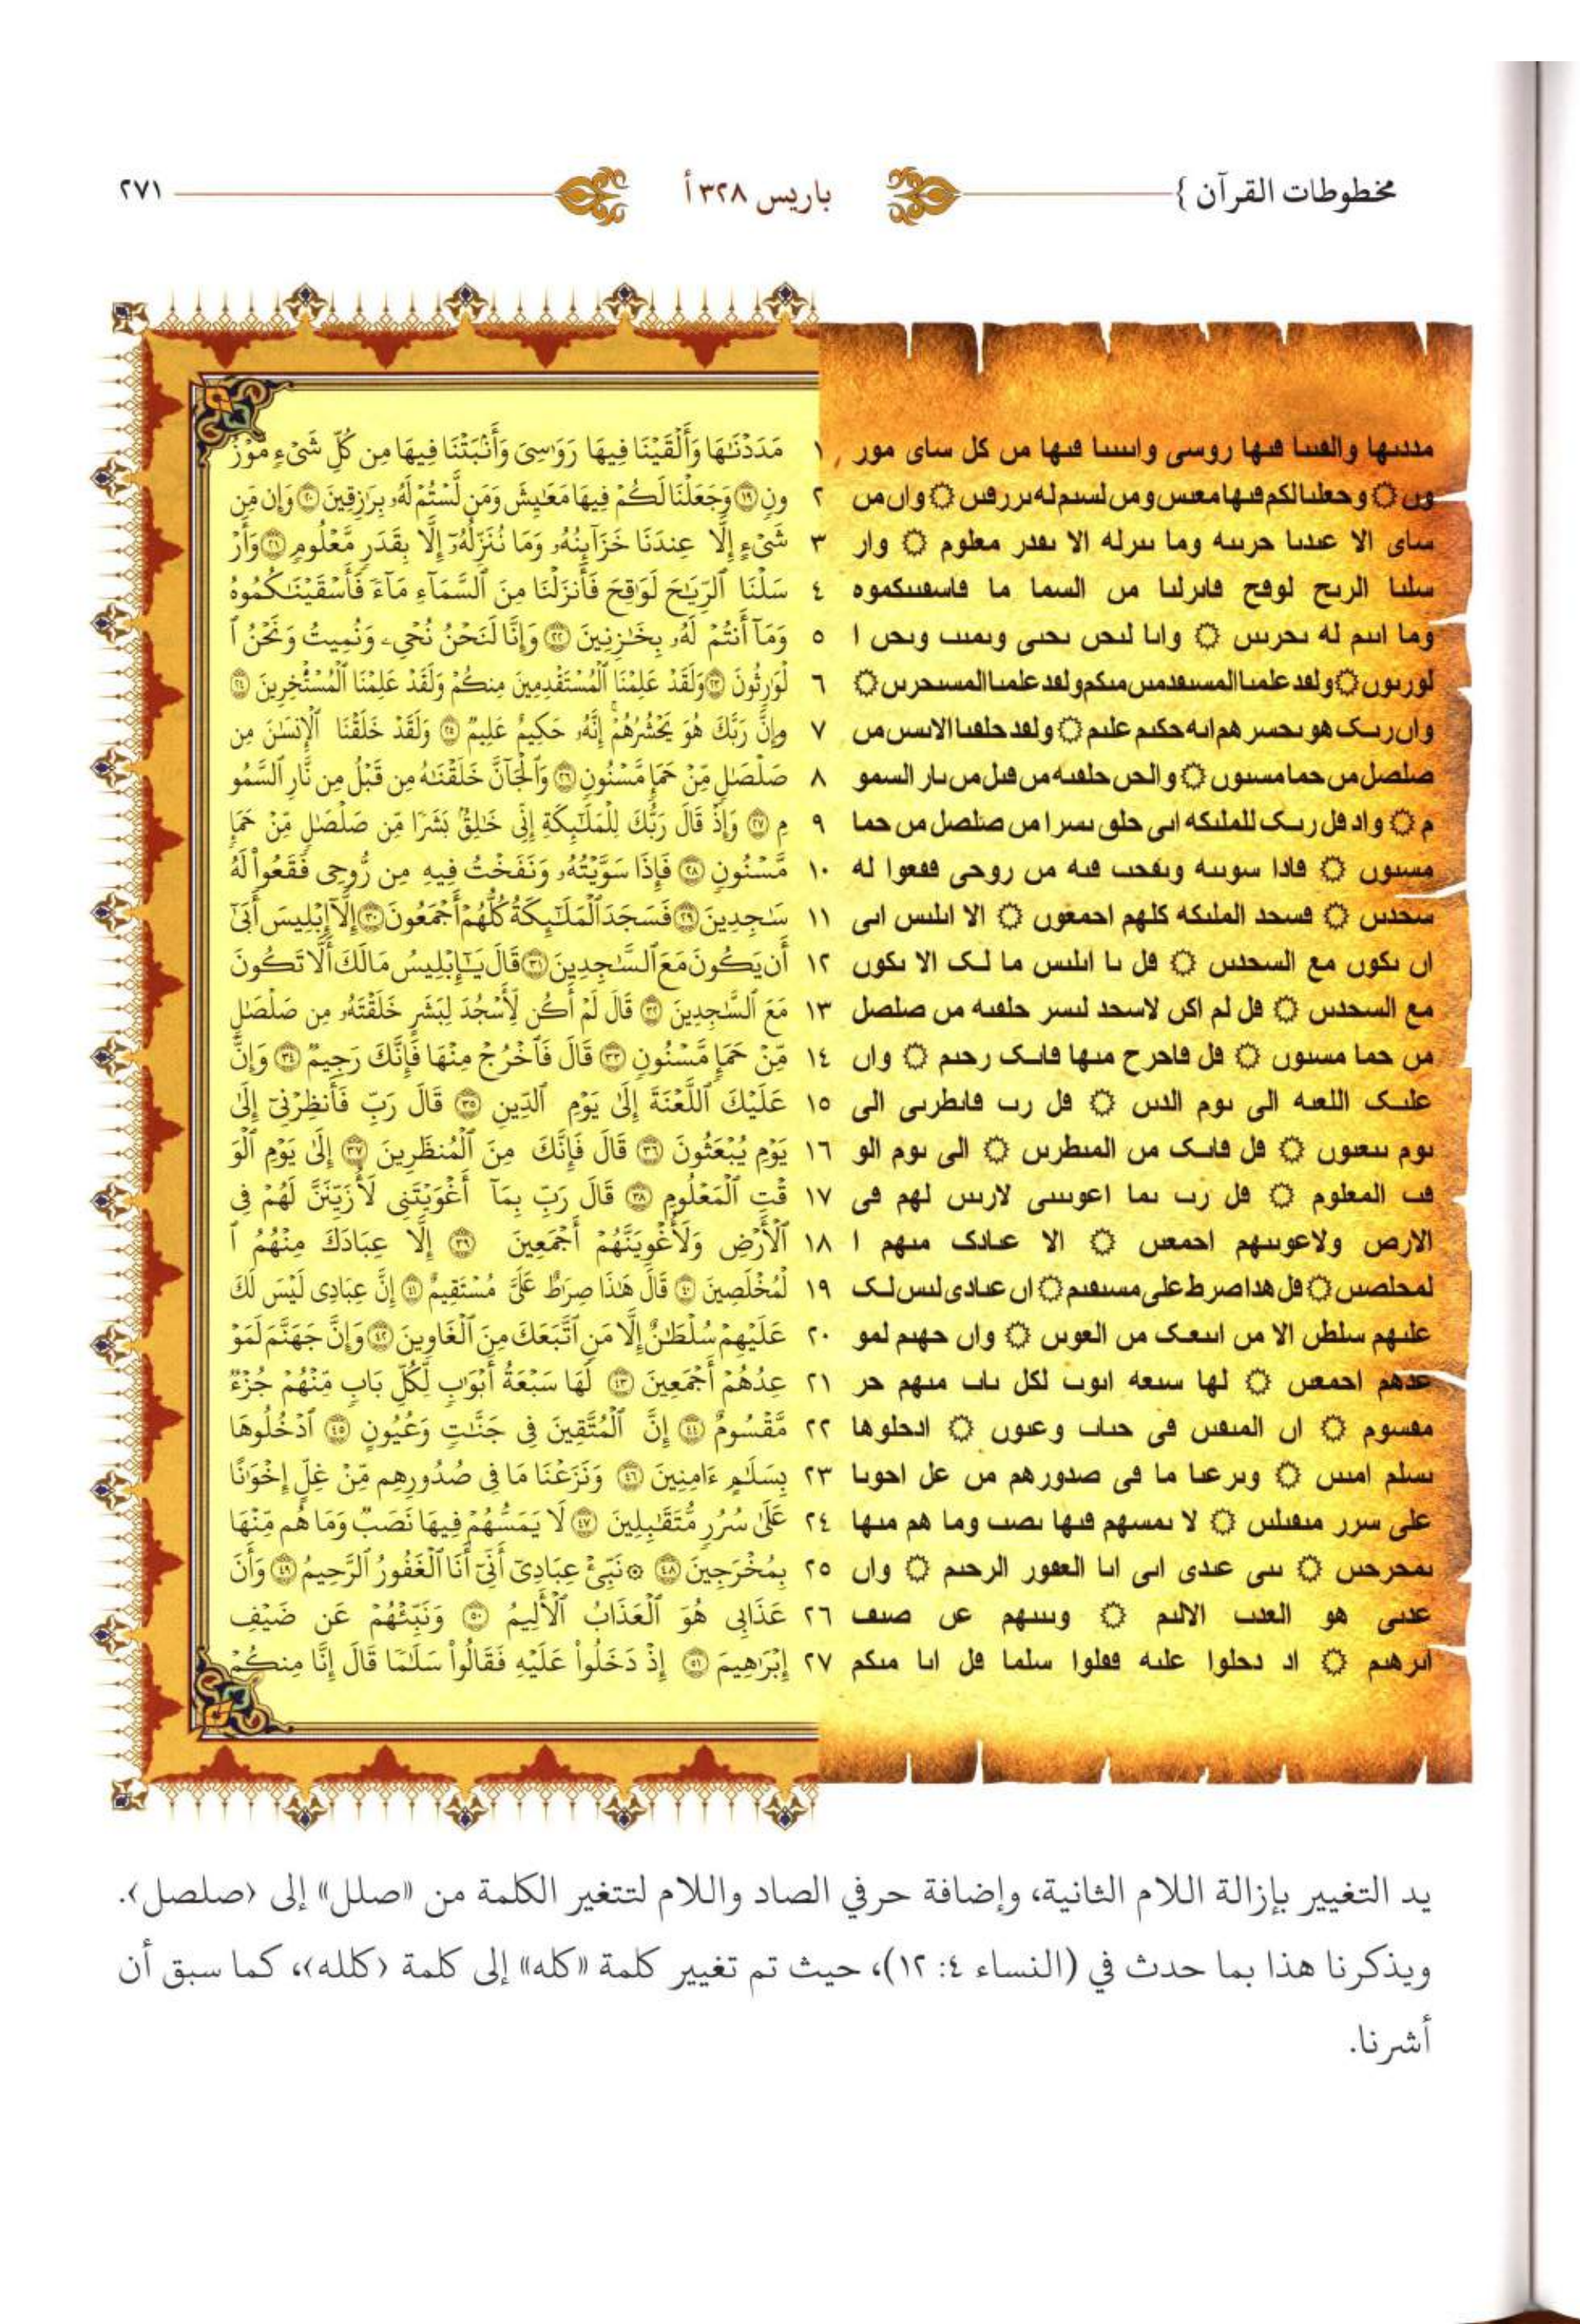 مخطوطات القرآن } باريس ٣٢٨ أ ٢٧١
مددٮها والڡٮٮا ڡٮها روسى واٮٮٮٮا ڡٮها مں كل ساى مور ١ مَدَدْنَٰهَا وَأَلْقَيْنَا فِيهَا رَوَٰسِىَ وَأَنۢبَتْنَا فِيهَا مِن كُلِّ شَىْءٍ مَّوْزُ
وں ۞ وحعلٮا لكم ڡٮها معٮس ومں لسٮم له ٮررڡٮں ۞ واں مں ٢ ونٍ ١٩ وَجَعَلْنَا لَكُمْ فِيهَا مَعَٰيِشَ وَمَن لَّسْتُمْ لَهُۥ بِرَٰزِقِينَ ٢٠ وَإِن مِّن
ساى الا عٮدٮا حرٮٮه وما ٮٮرله الا ٮڡدر معلوم ۞ وار ٣ شَىْءٍ إِلَّا عِندَنَا خَزَآئِنُهُۥ وَمَا نُنَزِّلُهُۥٓ إِلَّا بِقَدَرٍ مَّعْلُومٍ ٢١ وَأَرْ
سلٮا الرٮح لوڡح ڡاٮرلٮا مں السما ما ڡاسڡٮٮكموه ٤ سَلْنَا ٱلرِّيَٰحَ لَوَٰقِحَ فَأَنزَلْنَا مِنَ ٱلسَّمَآءِ مَآءً فَأَسْقَيْنَٰكُمُوهُ
وما اٮٮم له ٮحرٮٮں ۞ واٮا لٮحں ٮحٮى وٮمٮٮ وٮحں ا ٥ وَمَآ أَنتُمْ لَهُۥ بِخَٰزِنِينَ ٢٢ وَإِنَّا لَنَحْنُ نُحْىِۦ وَنُمِيتُ وَنَحْنُ ٱ
لورٮوں ۞ ولڡد علمٮا المسٮڡدمٮں مٮكم ولڡد علمٮا المسٮحرٮں ۞ ٦ لْوَٰرِثُونَ ٢٣ وَلَقَدْ عَلِمْنَا ٱلْمُسْتَقْدِمِينَ مِنكُمْ وَلَقَدْ عَلِمْنَا ٱلْمُسْتَـْٔخِرِينَ ٢٤
واں رٮک هو ٮحسر هم اٮه حكٮم علٮم ۞ ولڡد حلڡٮا الاٮسں مں ٧ وَإِنَّ رَبَّكَ هُوَ يَحْشُرُهُمْ إِنَّهُۥ حَكِيمٌ عَلِيمٌ ٢٥ وَلَقَدْ خَلَقْنَا ٱلْإِنسَٰنَ مِن
صلصل مں حما مسٮوں ۞ والحں حلڡٮه مں ڡٮل مں ٮار السمو ٨ صَلْصَٰلٍ مِّنْ حَمَإٍ مَّسْنُونٍ ٢٦ وَٱلْجَآنَّ خَلَقْنَٰهُ مِن قَبْلُ مِن نَّارِ ٱلسَّمُو
م ۞ واد ڡل رٮک للملٮكه اٮى حلى ٮسرا مں صلصل مں حما ٩ مِ ٢٧ وَإِذْ قَالَ رَبُّكَ لِلْمَلَٰٓئِكَةِ إِنِّى خَٰلِقٌۢ بَشَرًا مِّن صَلْصَٰلٍ مِّنْ حَمَإٍ
مسٮوں ۞ ڡادا سوٮٮه وٮڡحٮ ڡٮه مں روحى ڡڡعوا له ١٠ مَّسْنُونٍ ٢٨ فَإِذَا سَوَّيْتُهُۥ وَنَفَخْتُ فِيهِ مِن رُّوحِى فَقَعُوا۟ لَهُۥ
سحدٮں ۞ ڡسحد الملٮكه كلهم احمعوں ۞ الا اٮلٮس اٮى ١١ سَٰجِدِينَ ٢٩ فَسَجَدَ ٱلْمَلَٰٓئِكَةُ كُلُّهُمْ أَجْمَعُونَ ٣٠ إِلَّآ إِبْلِيسَ أَبَىٰٓ
اں ٮكوں مع السحدٮں ۞ ڡل ٮا اٮلٮس ما لک الا ٮكوں ١٢ أَن يَكُونَ مَعَ ٱلسَّٰجِدِينَ ٣١ قَالَ يَٰٓإِبْلِيسُ مَالَكَ أَلَّا تَكُونَ
مع السحدٮں ۞ ڡل لم اكں لاسحد لٮسر حلڡٮه مں صلصل ١٣ مَعَ ٱلسَّٰجِدِينَ ٣٢ قَالَ لَمْ أَكُن لِّأَسْجُدَ لِبَشَرٍ خَلَقْتَهُۥ مِن صَلْصَٰلٍ
مں حما مسٮوں ۞ ڡل ڡاحرح مٮها ڡاٮک رحٮم ۞ واں ١٤ مِّنْ حَمَإٍ مَّسْنُونٍ ٣٣ قَالَ فَٱخْرُجْ مِنْهَا فَإِنَّكَ رَجِيمٌ ٣٤ وَإِنَّ
علٮک اللعٮه الى ٮوم الدٮں ۞ ڡل رٮ ڡاٮطرٮى الى ١٥ عَلَيْكَ ٱللَّعْنَةَ إِلَىٰ يَوْمِ ٱلدِّينِ ٣٥ قَالَ رَبِّ فَأَنظِرْنِىٓ إِلَىٰ
ٮوم ٮٮعٮوں ۞ ڡل ڡاٮک مں المٮطرٮں ۞ الى ٮوم الو ١٦ يَوْمِ يُبْعَثُونَ ٣٦ قَالَ فَإِنَّكَ مِنَ ٱلْمُنظَرِينَ ٣٧ إِلَىٰ يَوْمِ ٱلْوَ
ڡٮ المعلوم ۞ ڡل رٮ ٮما اعوٮٮى لارٮٮں لهم ڡى ١٧ قْتِ ٱلْمَعْلُومِ ٣٨ قَالَ رَبِّ بِمَآ أَغْوَيْتَنِى لَأُزَيِّنَنَّ لَهُمْ فِى
الارص ولاعوٮٮهم احمعٮں ۞ الا عٮادک مٮهم ا ١٨ ٱلْأَرْضِ وَلَأُغْوِيَنَّهُمْ أَجْمَعِينَ ٣٩ إِلَّا عِبَادَكَ مِنْهُمُ ٱ
لمحلصٮں ۞ ڡل هدا صرط على مسٮڡٮم ۞ اں عٮادى لٮس لک ١٩ لْمُخْلَصِينَ ٤٠ قَالَ هَٰذَا صِرَٰطٌ عَلَىَّ مُسْتَقِيمٌ ٤١ إِنَّ عِبَادِى لَيْسَ لَكَ
علٮهم سلطں الا مں اٮٮعک مں العوٮں ۞ واں حهٮم لمو ٢٠ عَلَيْهِمْ سُلْطَٰنٌ إِلَّا مَنِ ٱتَّبَعَكَ مِنَ ٱلْغَاوِينَ ٤٢ وَإِنَّ جَهَنَّمَ لَمَوْ
عدهم احمعٮں ۞ لها سٮعه اٮوٮ لكل ٮاٮ مٮهم حر ٢١ عِدُهُمْ أَجْمَعِينَ ٤٣ لَهَا سَبْعَةُ أَبْوَٰبٍ لِّكُلِّ بَابٍ مِّنْهُمْ جُزْءٌ
مڡسوم ۞ اں المٮڡٮں ڡى حٮاٮ وعٮوں ۞ ادحلوها ٢٢ مَّقْسُومٌ ٤٤ إِنَّ ٱلْمُتَّقِينَ فِى جَنَّٰتٍ وَعُيُونٍ ٤٥ ٱدْخُلُوهَا
ٮسلم امٮٮں ۞ وٮرعٮا ما ڡى صدورهم مں عل احوٮا ٢٣ بِسَلَٰمٍ ءَامِنِينَ ٤٦ وَنَزَعْنَا مَا فِى صُدُورِهِم مِّنْ غِلٍّ إِخْوَٰنًا
على سرر مٮڡٮلٮں ۞ لا ٮمسهم ڡٮها ٮصٮ وما هم مٮها ٢٤ عَلَىٰ سُرُرٍ مُّتَقَٰبِلِينَ ٤٧ لَا يَمَسُّهُمْ فِيهَا نَصَبٌ وَمَا هُم مِّنْهَا
ٮمحرحٮں ۞ ٮٮى عٮدى اٮى اٮا العڡور الرحٮم ۞ واں ٢٥ بِمُخْرَجِينَ ٤٨ ۞ نَبِّئْ عِبَادِىٓ أَنِّىٓ أَنَا ٱلْغَفُورُ ٱلرَّحِيمُ ٤٩ وَأَنَّ
عدٮى هو العدٮ الالٮم ۞ وٮٮٮهم عں صٮڡ ٢٦ عَذَابِى هُوَ ٱلْعَذَابُ ٱلْأَلِيمُ ٥٠ وَنَبِّئْهُمْ عَن ضَيْفِ
اٮرهٮم ۞ اد دحلوا علٮه ڡڡلوا سلما ڡل اٮا مٮكم ٢٧ إِبْرَٰهِيمَ ٥١ إِذْ دَخَلُوا۟ عَلَيْهِ فَقَالُوا۟ سَلَٰمًا قَالَ إِنَّا مِنكُمْ
يد التغيير بإزالة اللام الثانية، وإضافة حرفي الصاد واللام لتتغير الكلمة من «صلل» إلى ‹صلصل›.
ويذكرنا هذا بما حدث في (النساء ٤: ١٢)، حيث تم تغيير كلمة «كله» إلى كلمة ‹كلله›، كما سبق أن
أشرنا.